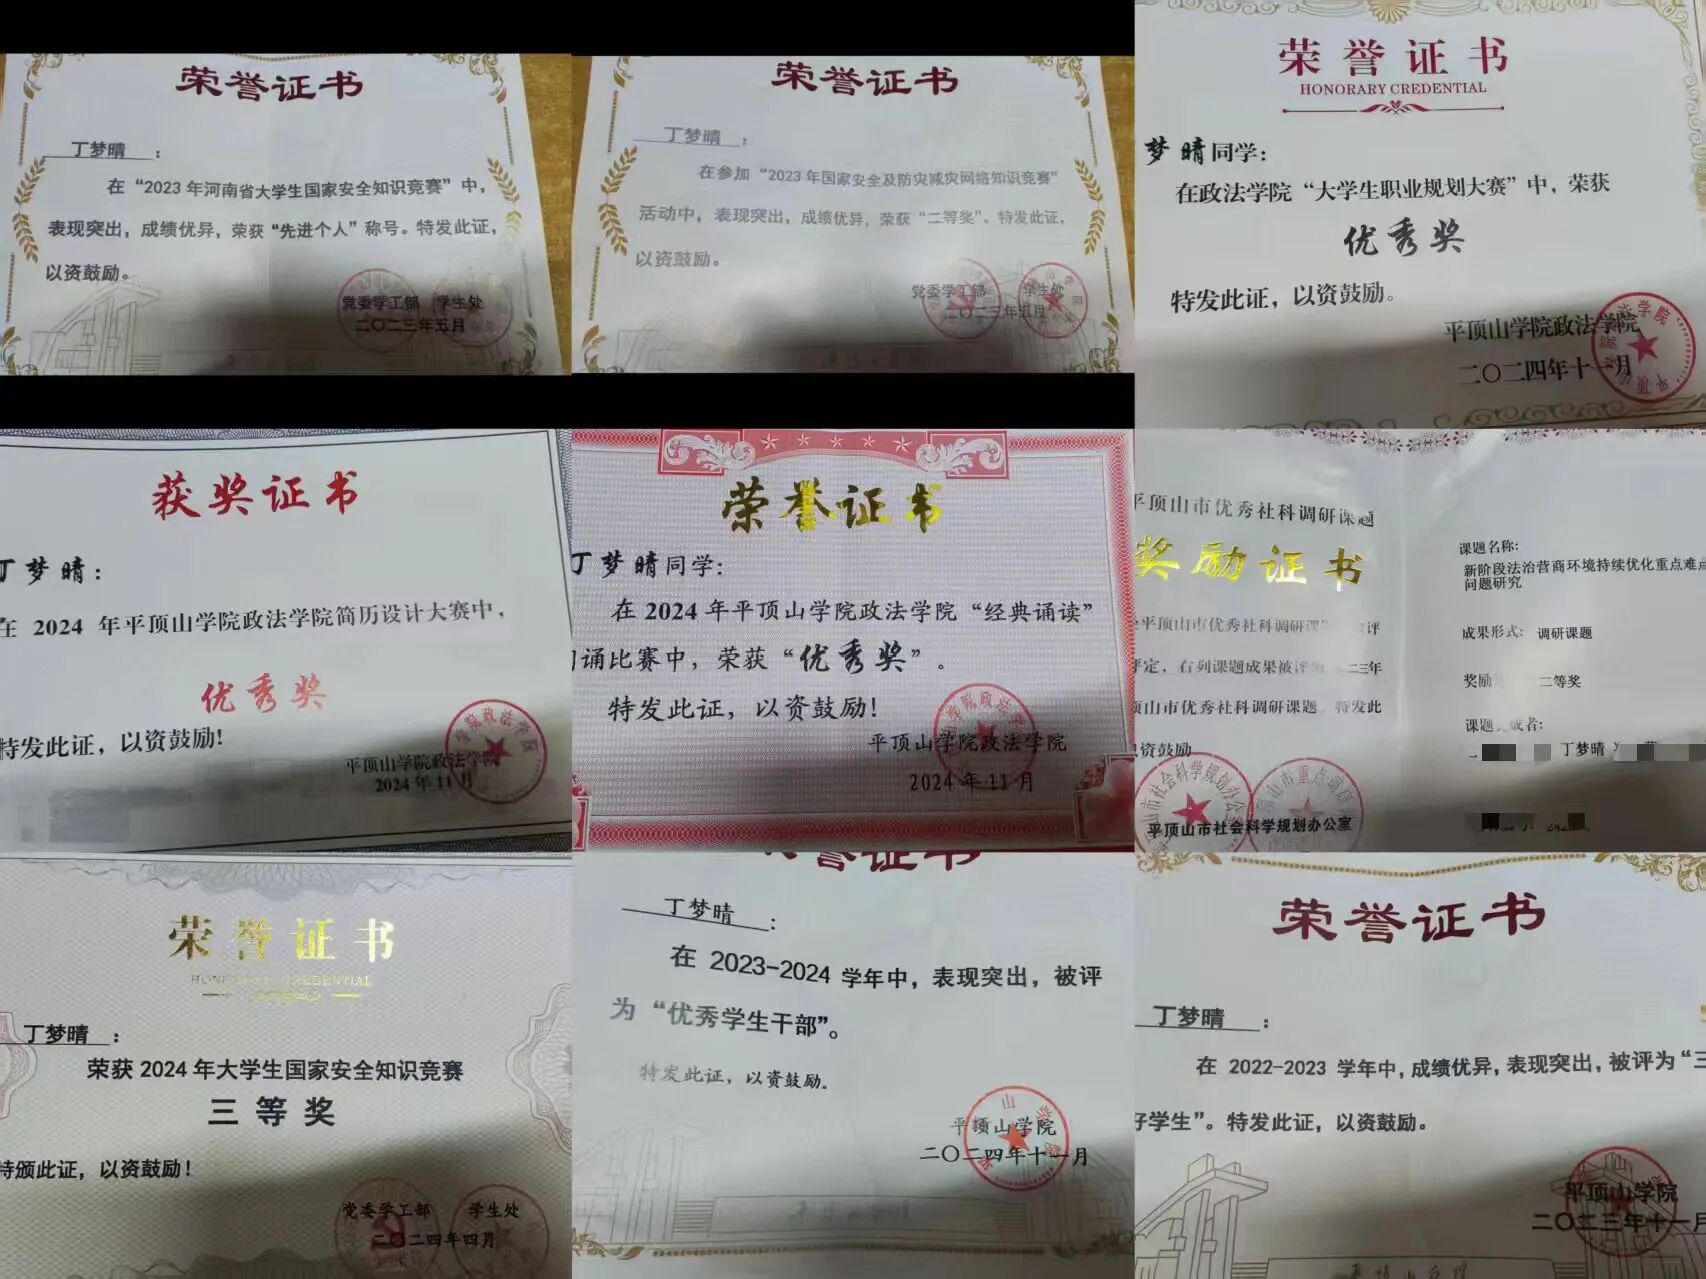 荣誉证书
丁梦晴:
在“2023年河南省大学生国家安全知识竞赛”中,
表现突出,成绩优异,荣获“先进个人”称号。特发此证,
以资鼓励。
党委学工部 学生处
二〇二三年五月
荣誉证书
丁梦晴:
在参加“2023年国家安全及防灾减灾网络知识竞赛”
活动中,表现突出,成绩优异,荣获“二等奖”。特发此证,
以资鼓励。
党委学工部 学生处
二〇二三年五月
荣誉证书
HONORARY CREDENTIAL
梦晴同学:
在政法学院“大学生职业规划大赛”中,荣获
优秀奖
特发此证,以资鼓励。
平顶山学院政法学院
二〇二四年十一月
获奖证书
丁梦晴:
在 2024 年平顶山学院政法学院简历设计大赛中,
优秀奖
特发此证,以资鼓励!
平顶山学院政法学院
2024年11月
荣誉证书
丁梦晴同学:
在2024年平顶山学院政法学院“经典诵读”
诵比赛中,荣获“优秀奖”。
特发此证,以资鼓励!
平顶山学院政法学院
2024年11月
平顶山市优秀社科调研课题
奖励证书
平顶山市优秀社科调研课 评
评定,右列课题成果被评为 二三年
顶山市优秀社科调研课题 特发此
资鼓励
平顶山市社会科学规划办公室
课题名称:
新阶段法治营商环境持续优化重点难点
问题研究
成果形式: 调研课题
奖励 二等奖
课题 或者:
丁梦晴
荣誉证书
HONORARY CREDENTIAL
丁梦晴:
荣获2024年大学生国家安全知识竞赛
三等奖
特颁此证,以资鼓励!
党委学工部 学生处
二〇二四年四月
荣誉证书
丁梦晴:
在 2023-2024 学年中,表现突出,被评
为“优秀学生干部”。
特发此证,以资鼓励。
平顶山学院
二〇二四年十一月
荣誉证书
丁梦晴:
在 2022-2023 学年中,成绩优异,表现突出,被评为“三
好学生”。特发此证,以资鼓励。
平顶山学院
二〇二三年十一月